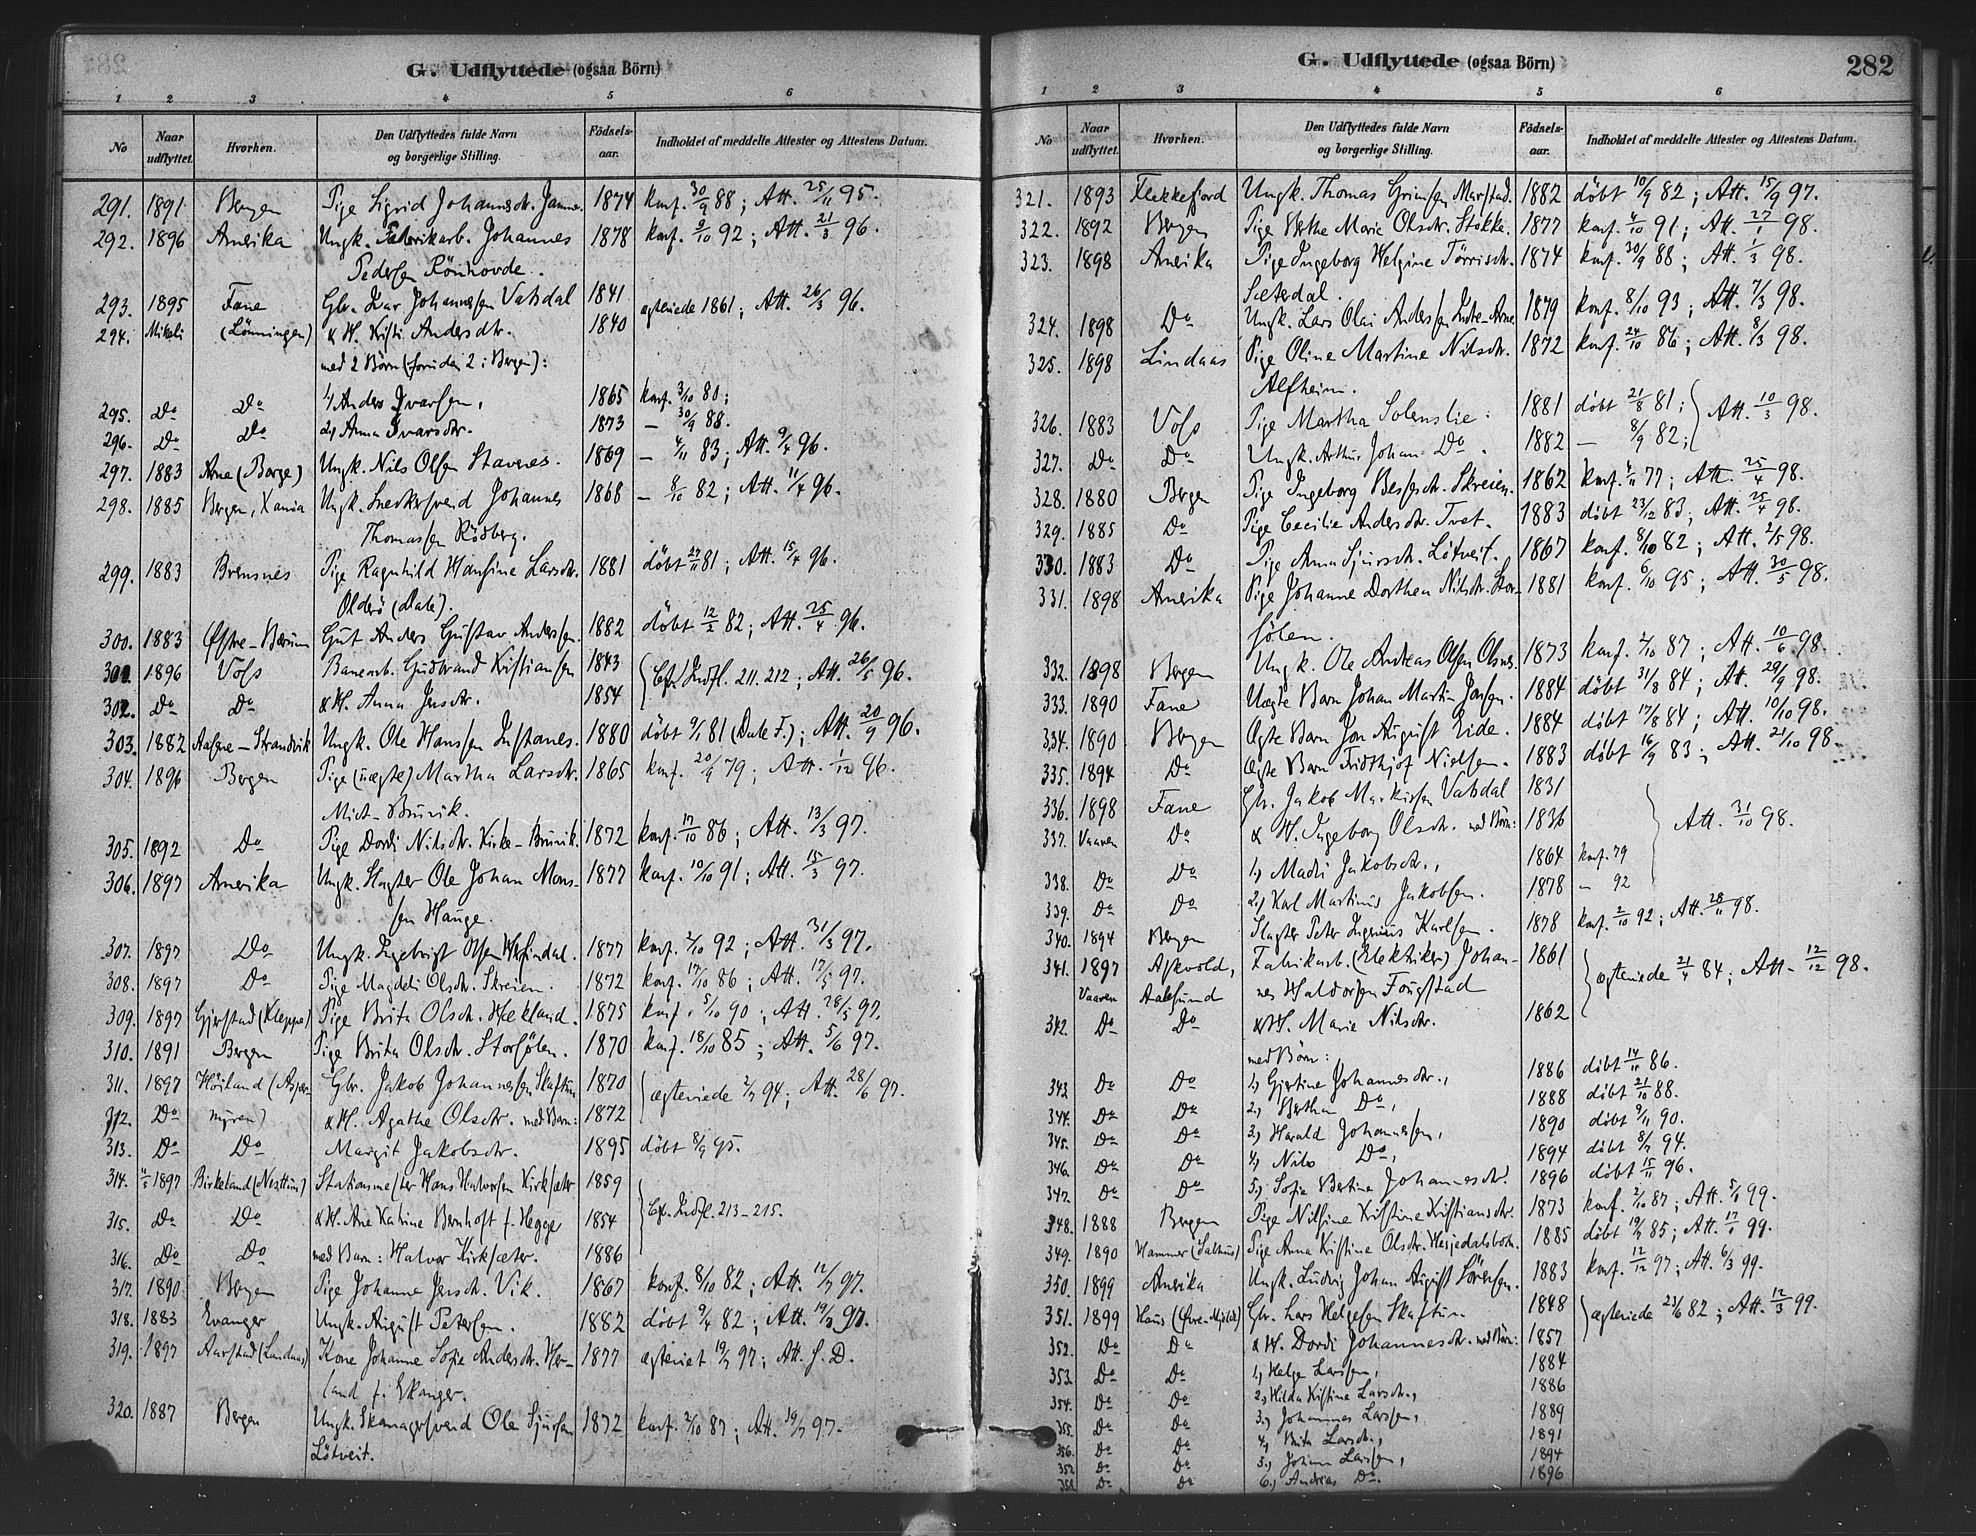 G. Udflyttede (ogsaa Börn)
1 2 3 4 5 6
No Naar udflyttet. Hvorhen. Den Udflyttedes fulde Navn og borgerlige Stilling. Födsels-aar. Indholdet af meddelte Attester og Attestens Datum.
291. 1891 Bergen Pige Sigrid Johannesdr. 1874 konf. 30/9 88; Att. 25/11 95.
292. 1896 Amerika Ungk. Fabrikarb. Johannes 1878 konf. 9/10 92; Att. 21/3 96.
Pedersen Rönhovde.
293. 1895 Fane Gbr. Ivar Johannessen Vatsdal 1841 ægteviede 1861; Att. 26/3 96.
294. Mikeli (Lönningen) & H. Kristi Andersdtr. 1840
med 2 Börn (foruden 2 i Bergen):
295. Do Do 1) Anders Ivarsen, 1865 konf. 3/10 80;
296. Do Do 2) Anna Ivarsdtr. 1873 — 30/9 88.
297. 1883 Arne (Borge) Ungk. Nils Olsen Stavnes. 1869 — 4/11 83; Att. 9/4 96.
298. 1885 Bergen, Xania Ungk. Snedkersvend Johannes 1868 — 8/10 82; Att. 11/4 96.
Thomassen Rödberg.
299. 1883 Bremsnes Pige Ragnhild Hansine Larsdtr. 1881 döbt 27/11 81; Att. 15/4 96.
Olderö (Dale).
300. 1883 Østre-Bærum Gut Anders Gustav Anderssen. 1882 döbt 12/2 82; Att. 25/4 96.
301. 1896 Voss Banearb. Gudbrand Kristiansen 1843 Cfr. Indfl. 211. 212; Att. 26/5 96.
302. Do Do & H. Anna Jensdtr. 1854
303. 1882 Aasene-Strandvik Ungk. Ole Hanssen Instanes. 1880 döbt 9/1 81 (Dale F.); Att. 20/9 96.
304. 1896 Bergen Pige (uægte) Martha Larsdtr. 1865 konf. 20/9 79; Att. 1/12 96.
Midt-Bruvik.
305. 1892 Do Pige Dordi Nilsdtr. Kirke-Bruvik. 1872 konf. 17/10 86; Att. 13/3 97.
306. 1897 Amerika Ungk. Slagter Ole Johan Mons- 1877 konf. 10/10 91; Att. 15/3 97.
sen Hauge.
307. 1897 Do Ungk. Ingebrigt Olsen 1877 konf. 2/10 92; Att. 31/3 97.
308. 1897 Do Pige Magdeli Olsdtr. Skreien. 1872 konf. 17/10 86; Att. 17/5 97.
309. 1897 Gjerstad (Kleppe) Pige Brita Olsdtr. Hekland. 1875 konf. 5/10 90; Att. 28/5 97.
310. 1891 Bergen Pige Brita Olsdtr. Storsölen. 1870 konf. 18/10 85; Att. 5/6 97.
311. 1897 Höiland (Asper- Gbr. Jakob Johannessen Skaftun 1870 ægteviede 2/7 94; Att. 28/6 97.
312. Do myren) & H. Agathe Olsdtr. med Barn: 1872
313. Do Do Margit Jakobsdtr. 1895 döbt 8/9 95.
314. 4/5 1897 Birkeland (Nesttun) Stationsmester Hans Halvorsen Kirksæter 1859
315. Do Do & H. Ane Katrine Bernhoft f. Hegge 1854 Cfr. Indfl. 213-215.
316. Do Do med Barn: Halvor Kirksæter. 1886
317. 1890 Bergen Pige Johanne Jensdtr. Vik. 1867 konf. 8/10 82; Att. 12/7 97.
318. 1883 Evanger Ungk. August Petersen. 1882 döbt 9/4 82; Att. 19/7 97.
319. 1897 Aarstad (Landaas) Kone Johanne Sofie Andersdtr. Her- 1877 ægteviet 19/7 97; Att. S. D.
land f. Ekanger.
320. 1887 Bergen Ungk. Skomagersvend Ole Sjursen 1872 konf. 2/10 87; Att. 19/7 97.
Lötveit.
G. Udflyttede (ogsaa Börn) 282
1 2 3 4 5 6
No Naar udflyttet. Hvorhen. Den Udflyttedes fulde Navn og borgerlige Stilling. Födsels-aar. Indholdet af meddelte Attester og Attestens Datum.
321. 1893 Flekkefjord Ungk. Thomas Grimsen Marstad. 1882 döbt 10/9 82; Att. 15/9 97.
322. 1892 Bergen Pige Berthe Marie Olsdtr. Stokke. 1877 konf. 4/10 91; Att. 27/1 98.
323. 1898 Amerika Pige Ingeborg Helgine Törrisdtr. 1874 konf. 30/9 88; Att. 1/3 98.
Sæterdal.
324. 1898 Do Ungk. Lars Olai Anderssen Indre-Arne 1879 konf. 8/10 93; Att. 7/3 98.
325. 1898 Lindaas Pige Oline Martine Nilsdtr. 1872 konf. 24/10 86; Att. 8/3 98.
Alfheim.
326. 1883 Voss Pige Martha Solenslie: 1881 döbt 21/8 81; Att. 10/3 98.
327. Do Do Ungk. Arthur Johan Do. 1882 — 8/9 82;
328. 1880 Bergen Pige Ingeborg Bessesdtr. Skreien. 1862 konf. 4/11 77; Att. 25/4 98.
329. 1885 Do Pige Cecilie Andersdtr. Tvet. 1883 döbt 23/12 83; Att. 25/4 98.
330. 1883 Do Pige Anna Sjursdtr. Lötveit. 1867 konf. 8/10 82; Att. 2/5 98.
331. 1898 Amerika Pige Johanne Dorthea Nilsdtr. Stor- 1881 konf. 6/10 95; Att. 30/5 98.
sölen.
332. 1898 Bergen Ungk. Ole Andreas Olsen Olsnes. 1873 konf. 2/10 87; Att. 10/6 98.
333. 1890 Fane Uægte Barn Johan Martin Jensen. 1884 döbt 31/8 84; Att. 29/9 98.
334. 1890 Bergen Ægte Barn Jon August Eide. 1884 döbt 17/8 84; Att. 10/10 98.
335. 1894 Do Ægte Barn Fridthjof Nielsen. 1883 döbt 16/9 83; Att. 21/10 98.
336. 1898 Fane Gbr. Jakob Markussen Vatsdal 1831
337. Vaaren Do & H. Ingeborg Olsdtr. med Börn: 1836 Att. 31/10 98.
338. Do Do 1) Madli Jakobsdtr., 1864 konf. 79
339. Do Do 2) Karl Martinus Jakobsen. 1878 — 92
340. 1894 Bergen Slagter Peter Ingenius Karlsen. 1878 konf. 2/10 92; Att. 28/11 98.
341. 1897 Askvold, Fabrikarb. (Elektriker) Johan- 1861 ægteviede 21/4 84; Att. 12/12 98.
Vaaren Aalesund nes Haldorsen Fougstad
342. Do Do & H. Marie Nilsdtr. 1862
med Börn:
343. Do Do 1) Gjertine Johannesdtr., 1886 döbt 14/11 86.
344. Do Do 2) Bertha Do, 1888 döbt 21/10 88.
345. Do Do 3) Harald Johannessen, 1890 döbt 9/11 90.
346. Do Do 4) Nils Do, 1894 döbt 8/7 94.
347. Do Do 5) Sofie Bertine Johannesdtr. 1896 döbt 15/11 96.
348. 1888 Bergen Pige Nilsine Kristine Kristiansdtr. 1873 konf. 2/10 87; Att. 5/1 99.
349. 1890 Hammer (Salhus) Pige Anna Kristine Olsdtr. Hesjedalsbotn. 1885 döbt 19/7 85; Att. 17/1 99.
350. 1899 Amerika Ungk. Ludvig Johan August Sörensen. 1883 konf. 12/12 97; Att. 6/3 99.
351. 1899 Haus (Øvre-Mjelde) Gbr. Lars Helgesen Skaftun 1848 ægteviede 23/6 82; Att. 12/3 99.
352. Do Do & H. Dordi Johannesdtr. med Börn: 1857
353. Do Do 1) Helge Larssen, 1884
354. Do Do 2) Hilda Kristine Larsdtr., 1886
355. Do Do 3) Johannes Larssen, 1889
356. Do Do 4) Brita Larsdtr., 1891
357. Do Do 5) Johan Larssen, 1894
358. Do Do 6) Andreas Do. 1896